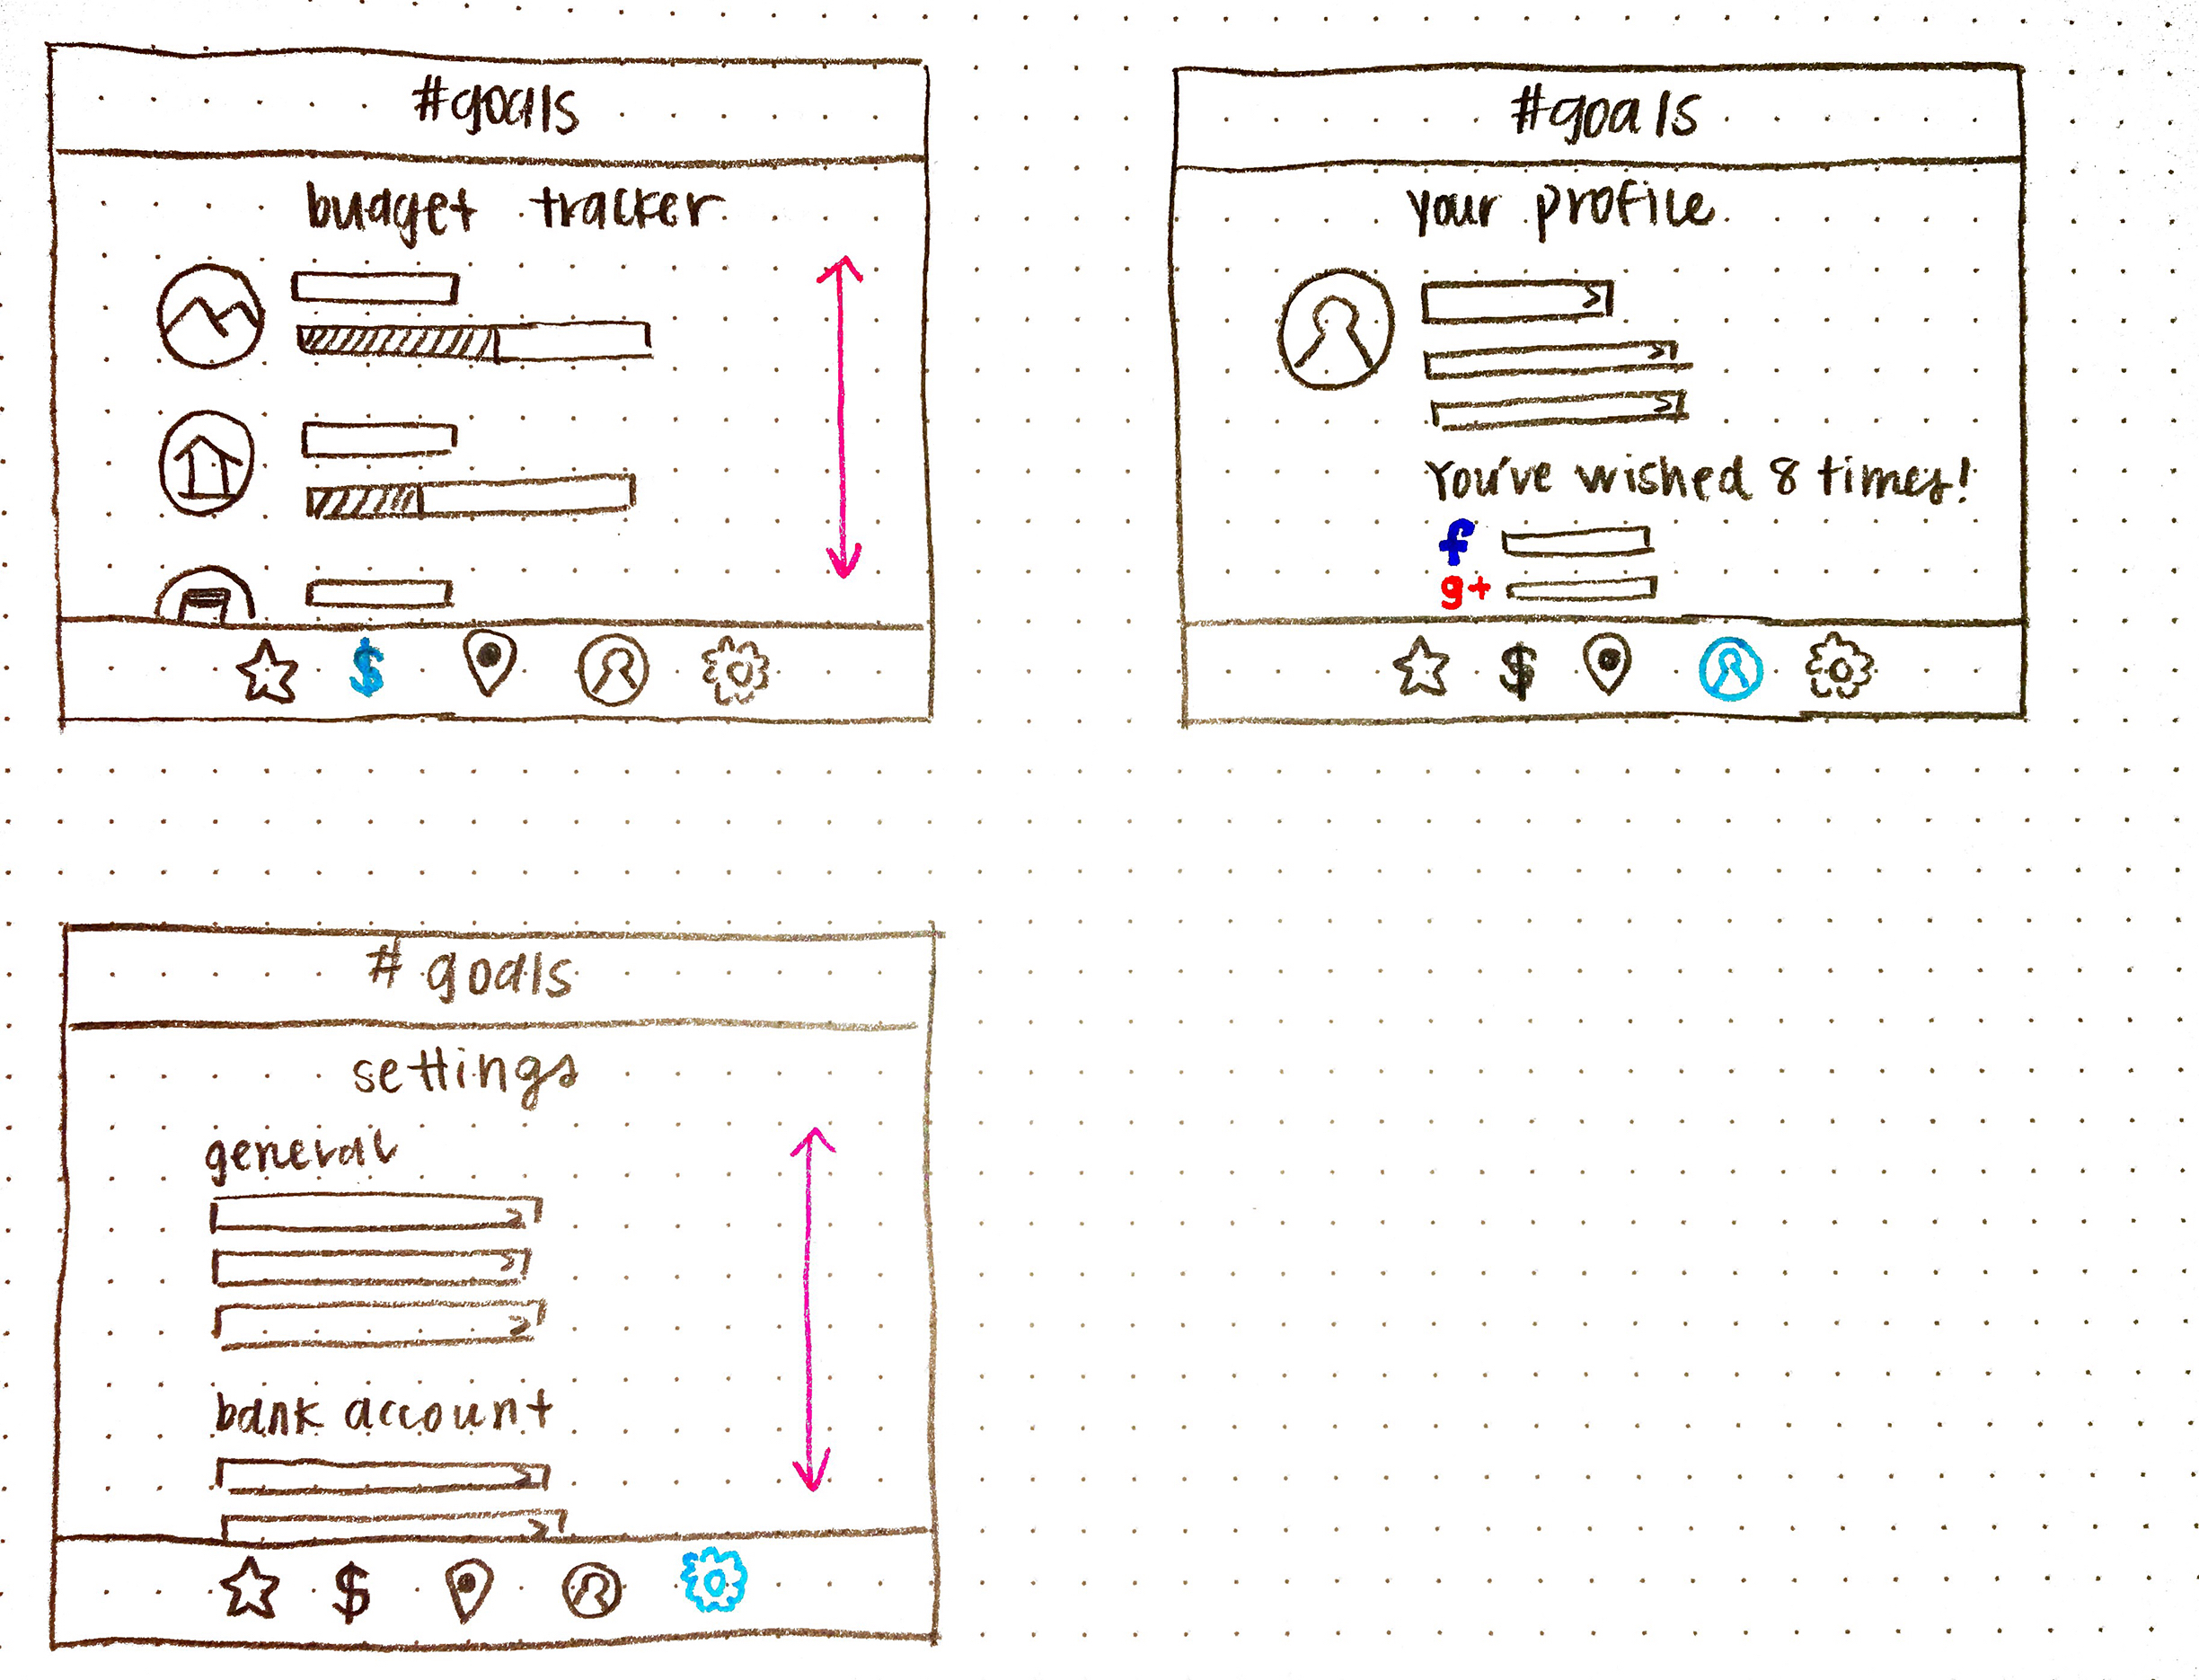 #goals
budget tracker
$
#goals
your profile
You've wished 8 times!
f
g+
$
# goals
settings
general
bank account
$